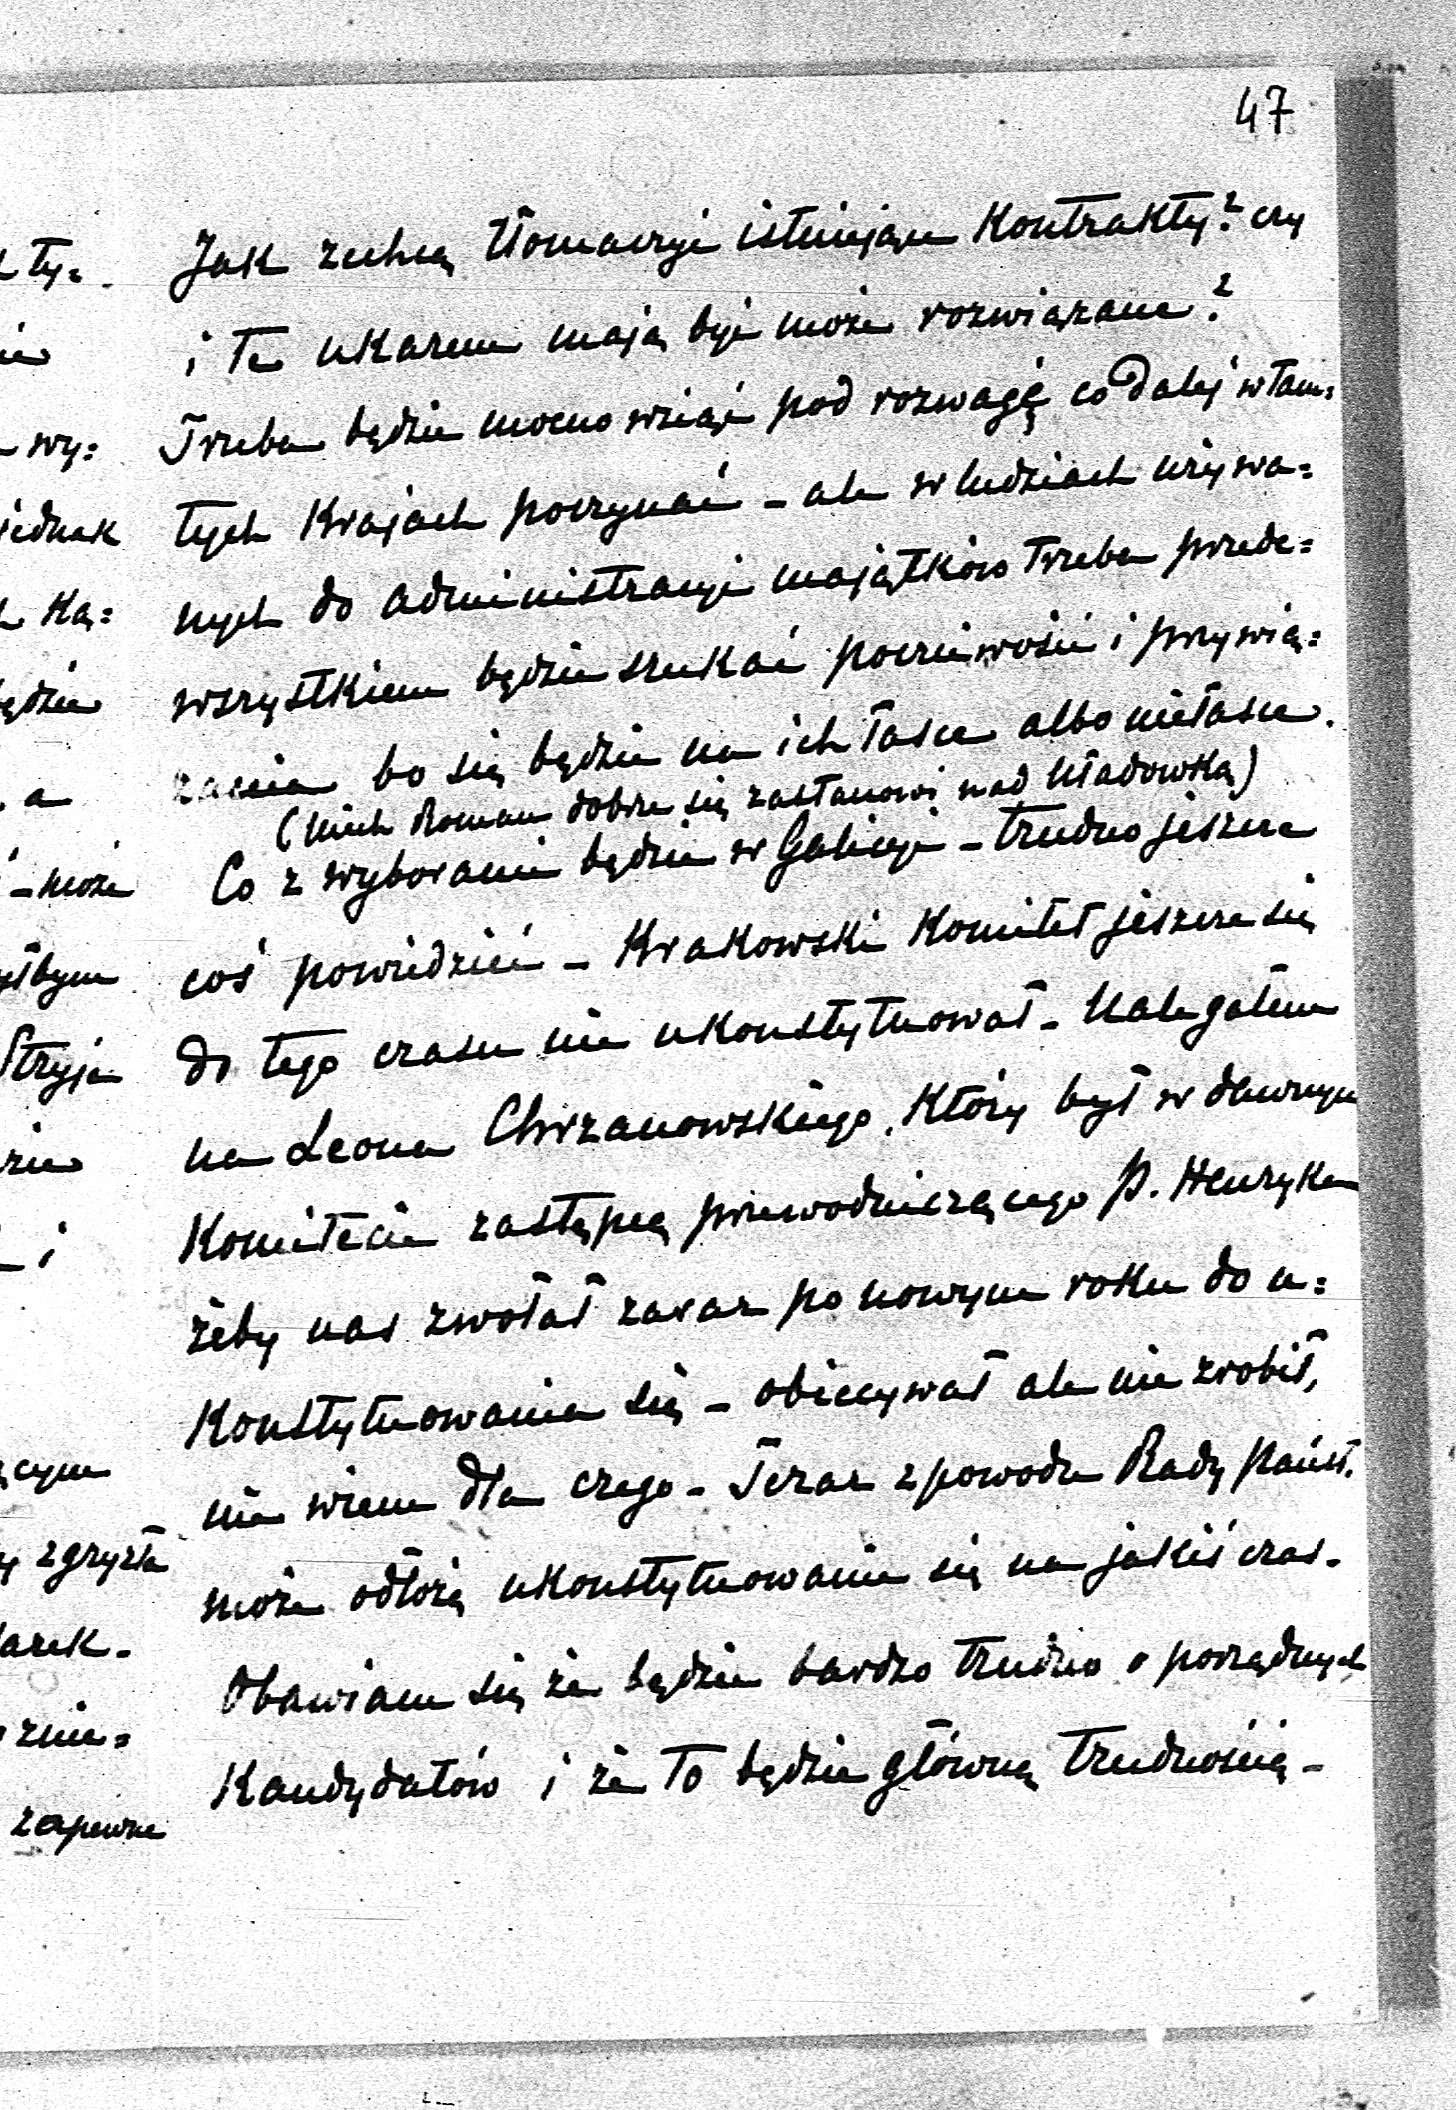 47
Jak zechcą tłomaczyć istniejące Kontrakty? czy
i te ukazem mają być może rozwiązane?
Trzeba będzie mocno wziąść pod rozwagę co dalej w tam=
tych Krajach poczynać - ale w ludziach używa=
nych do administracyi majątków trzeba przede=
wszystkiem będzie szukać poczciwości i przywią=
zania bo się będzie na ich łasce albo niełasce.
(niech Roman dobrze się zastanowi nad Uładowką)
Co z wyborami będzie w Galicyi - trudno jeszcze
coś powiedzieć - Krakowski Komitet jeszcze się
do tego czasu nie ukonstytuował - Nalegałem
na Leona Chrzanowskiego, Który był w dawnym
Komitecie zastępcą przewodniczącego P. Henryka
żeby nas zwołał zaraz po nowym roku do u=
Konstytuowania się - obiecywał ale nie zrobił,
nie wiem dla czego - Teraz z powodu Rady Państ.
może odłożą ukonstytuowanie się na jakiś czas.
Obawiam się że będzie bardzo trudno o porządnych
Kandydatów i że to będzie główną trudnością -
ty=
wy=
jednak
Ką=
będzie
a
- może
Stryja
i
zgryzła
zapewne